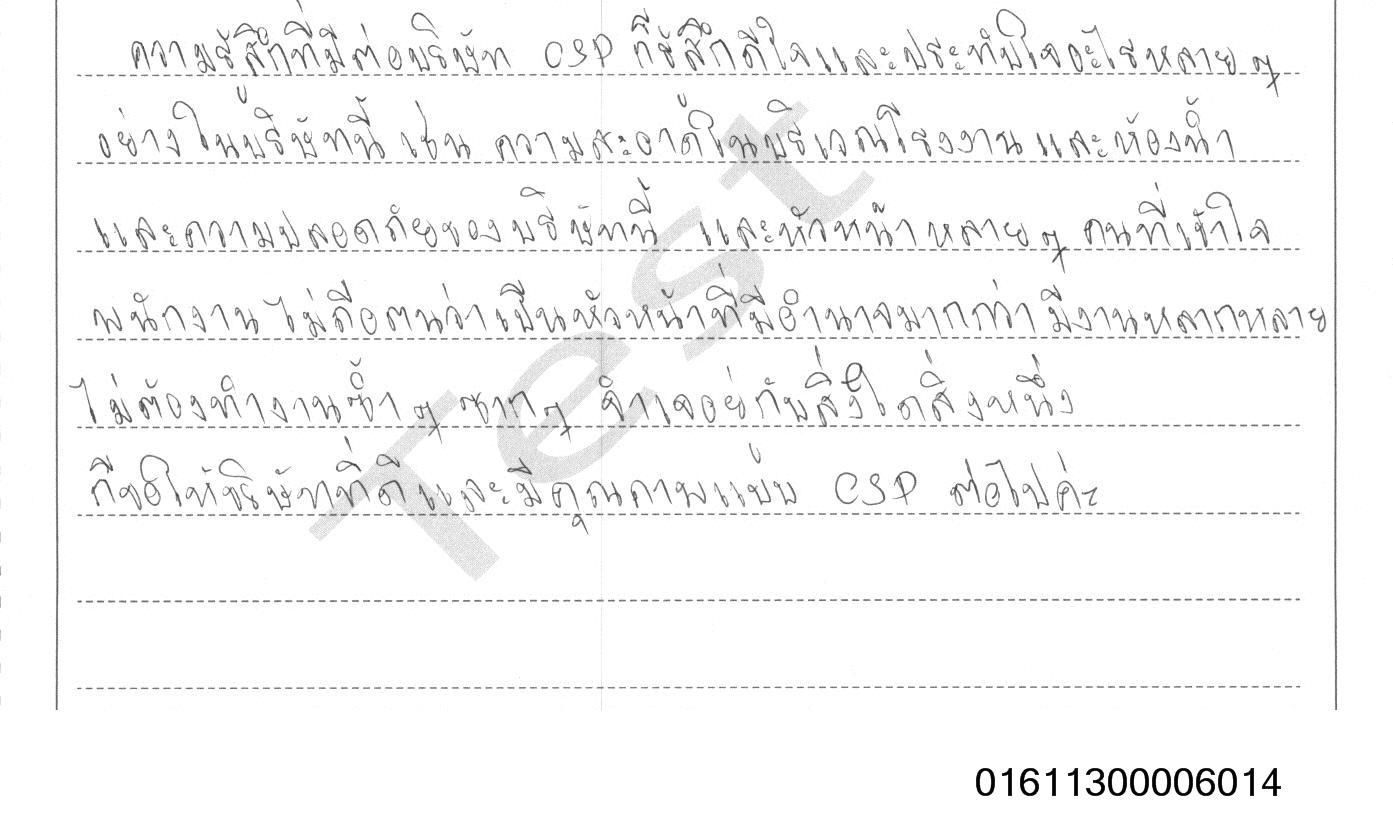 ความรู้สึกที่มีต่อบริษัท CSP ก็รู้สึกดีใจและประทับใจอะไรหลาย ๆ
อย่างในบริษัทนี้ เช่น ความสะอาดในบริเวณโรงงานและห้องน้ำ
และความปลอดภัยของบริษัทนี้ และหัวหน้าหลาย ๆ คนที่เข้าใจ
พนักงาน ไม่ถือตนว่าเป็นหัวหน้าที่มีอำนาจมากกว่า มีงานหลากหลาย
ไม่ต้องทำงานซ้ำ ๆ ซาก ๆ จำเจอยู่กับสิ่งใดสิ่งหนึ่ง
ก็ขอให้บริษัทที่ดีและมีคุณภาพแบบ CSP ต่อไปค่ะ
Test
01611300006014